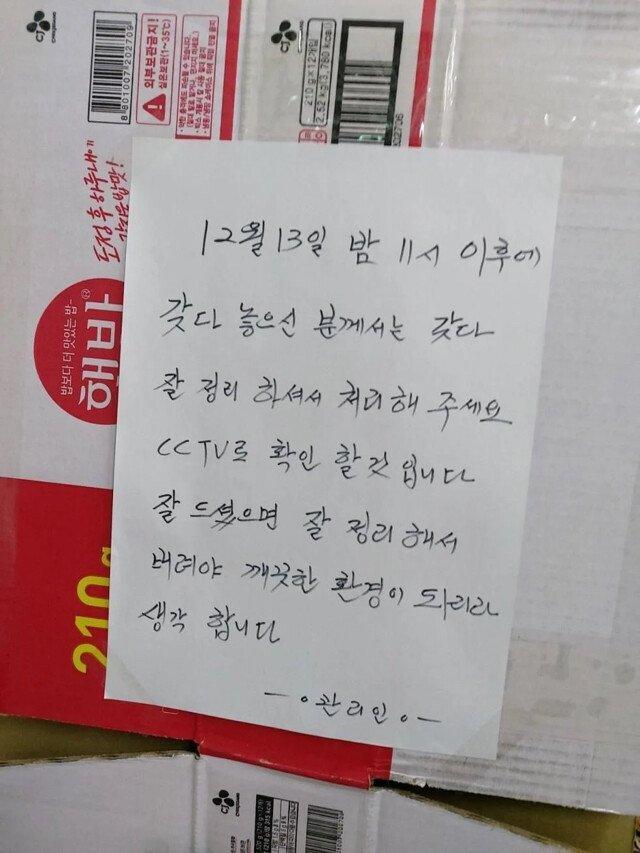 CJ
8801007202705
외부보관금지!
실온보관(1~35℃)
210 g x 12개입
2.52 kg (3,780 kcal)
도정 후 하루내에
햇반
밥보다 더 맛있는 밥
210g
12월 13일 밤 11시 이후에
갖다 놓으신 분께서는 갖다
잘 정리 하셔서 처리해 주세요
CCTV로 확인 할것 입니다
잘 드셨으면 잘 정리해서
버려야 깨끗한 환경이 되리라
생각 합니다
관리인
CJ